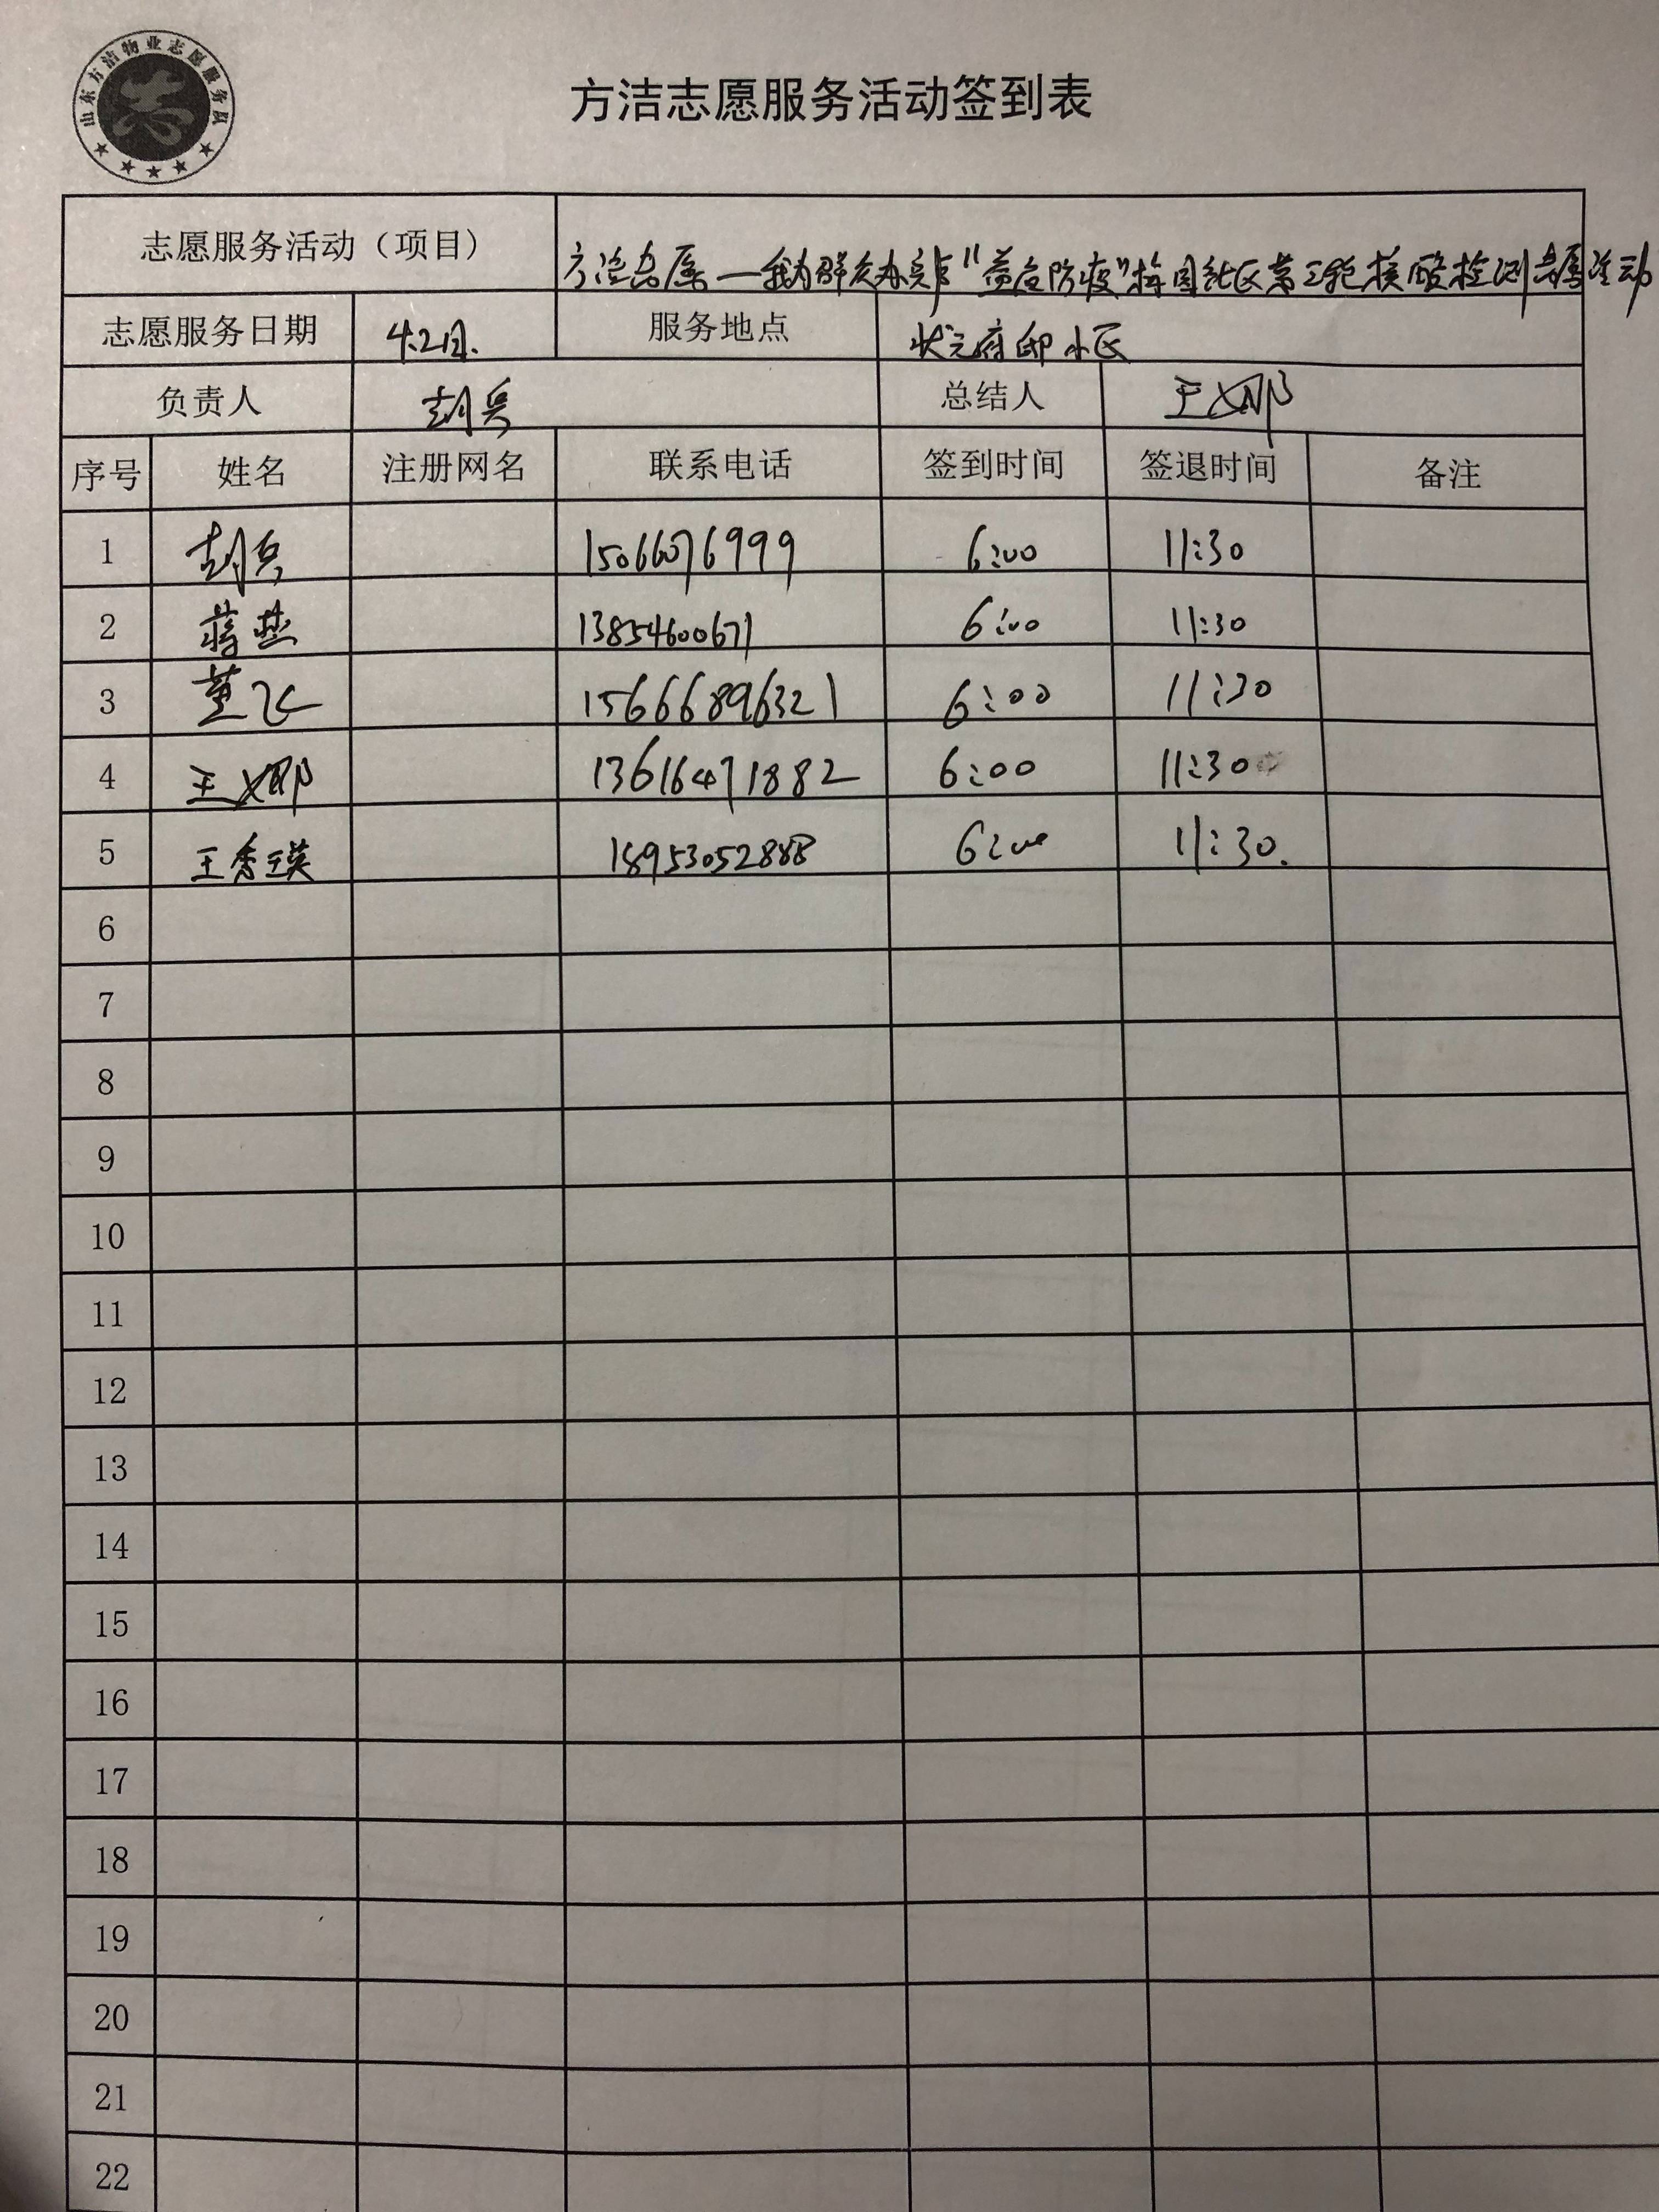 山东方洁物业志愿服务队
方洁志愿服务活动签到表
志愿服务活动（项目） 方洁志愿——我为群众办实事"益应防疫"梅园社区第三轮核酸检测志愿活动
志愿服务日期 4.21日. 服务地点 状元府邸小区
负责人 胡兵 总结人 王娜
序号 姓名 注册网名 联系电话 签到时间 签退时间 备注
1 胡兵 15066076999 6:00 11:30
2 蒋 13854600671 6:00 11:30
3 董飞 15666896321 6:00 11:30
4 王娜 13616471882 6:00 11:30
5 王秀瑛 18953052888 6:00 11:30.
6
7
8
9
10
11
12
13
14
15
16
17
18
19
20
21
22